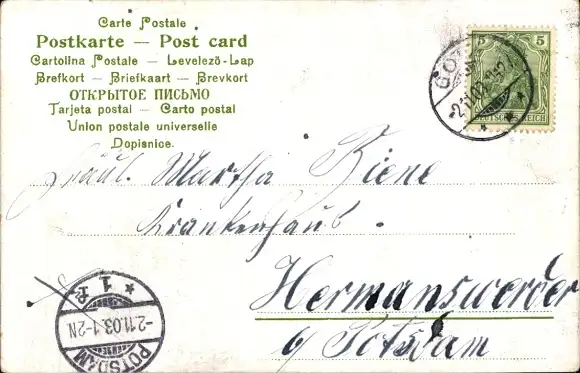 Carte Postale
Postkarte — Post card
Cartolina Postale — Levelező-Lap
Brefkort — Briefkaart — Brevkort
ОТКРЫТОЕ ПИСЬМО
Tarjeta postal — Carto postal
Union postale universelle
Dopisnice.
5 5
DEUTSCHES REICH
Fräul. Martha Biene
Krankenhaus.
Hermannswerder
b/ Potsdam
1 P.
-2.11.03.1-2N
POTSDAM